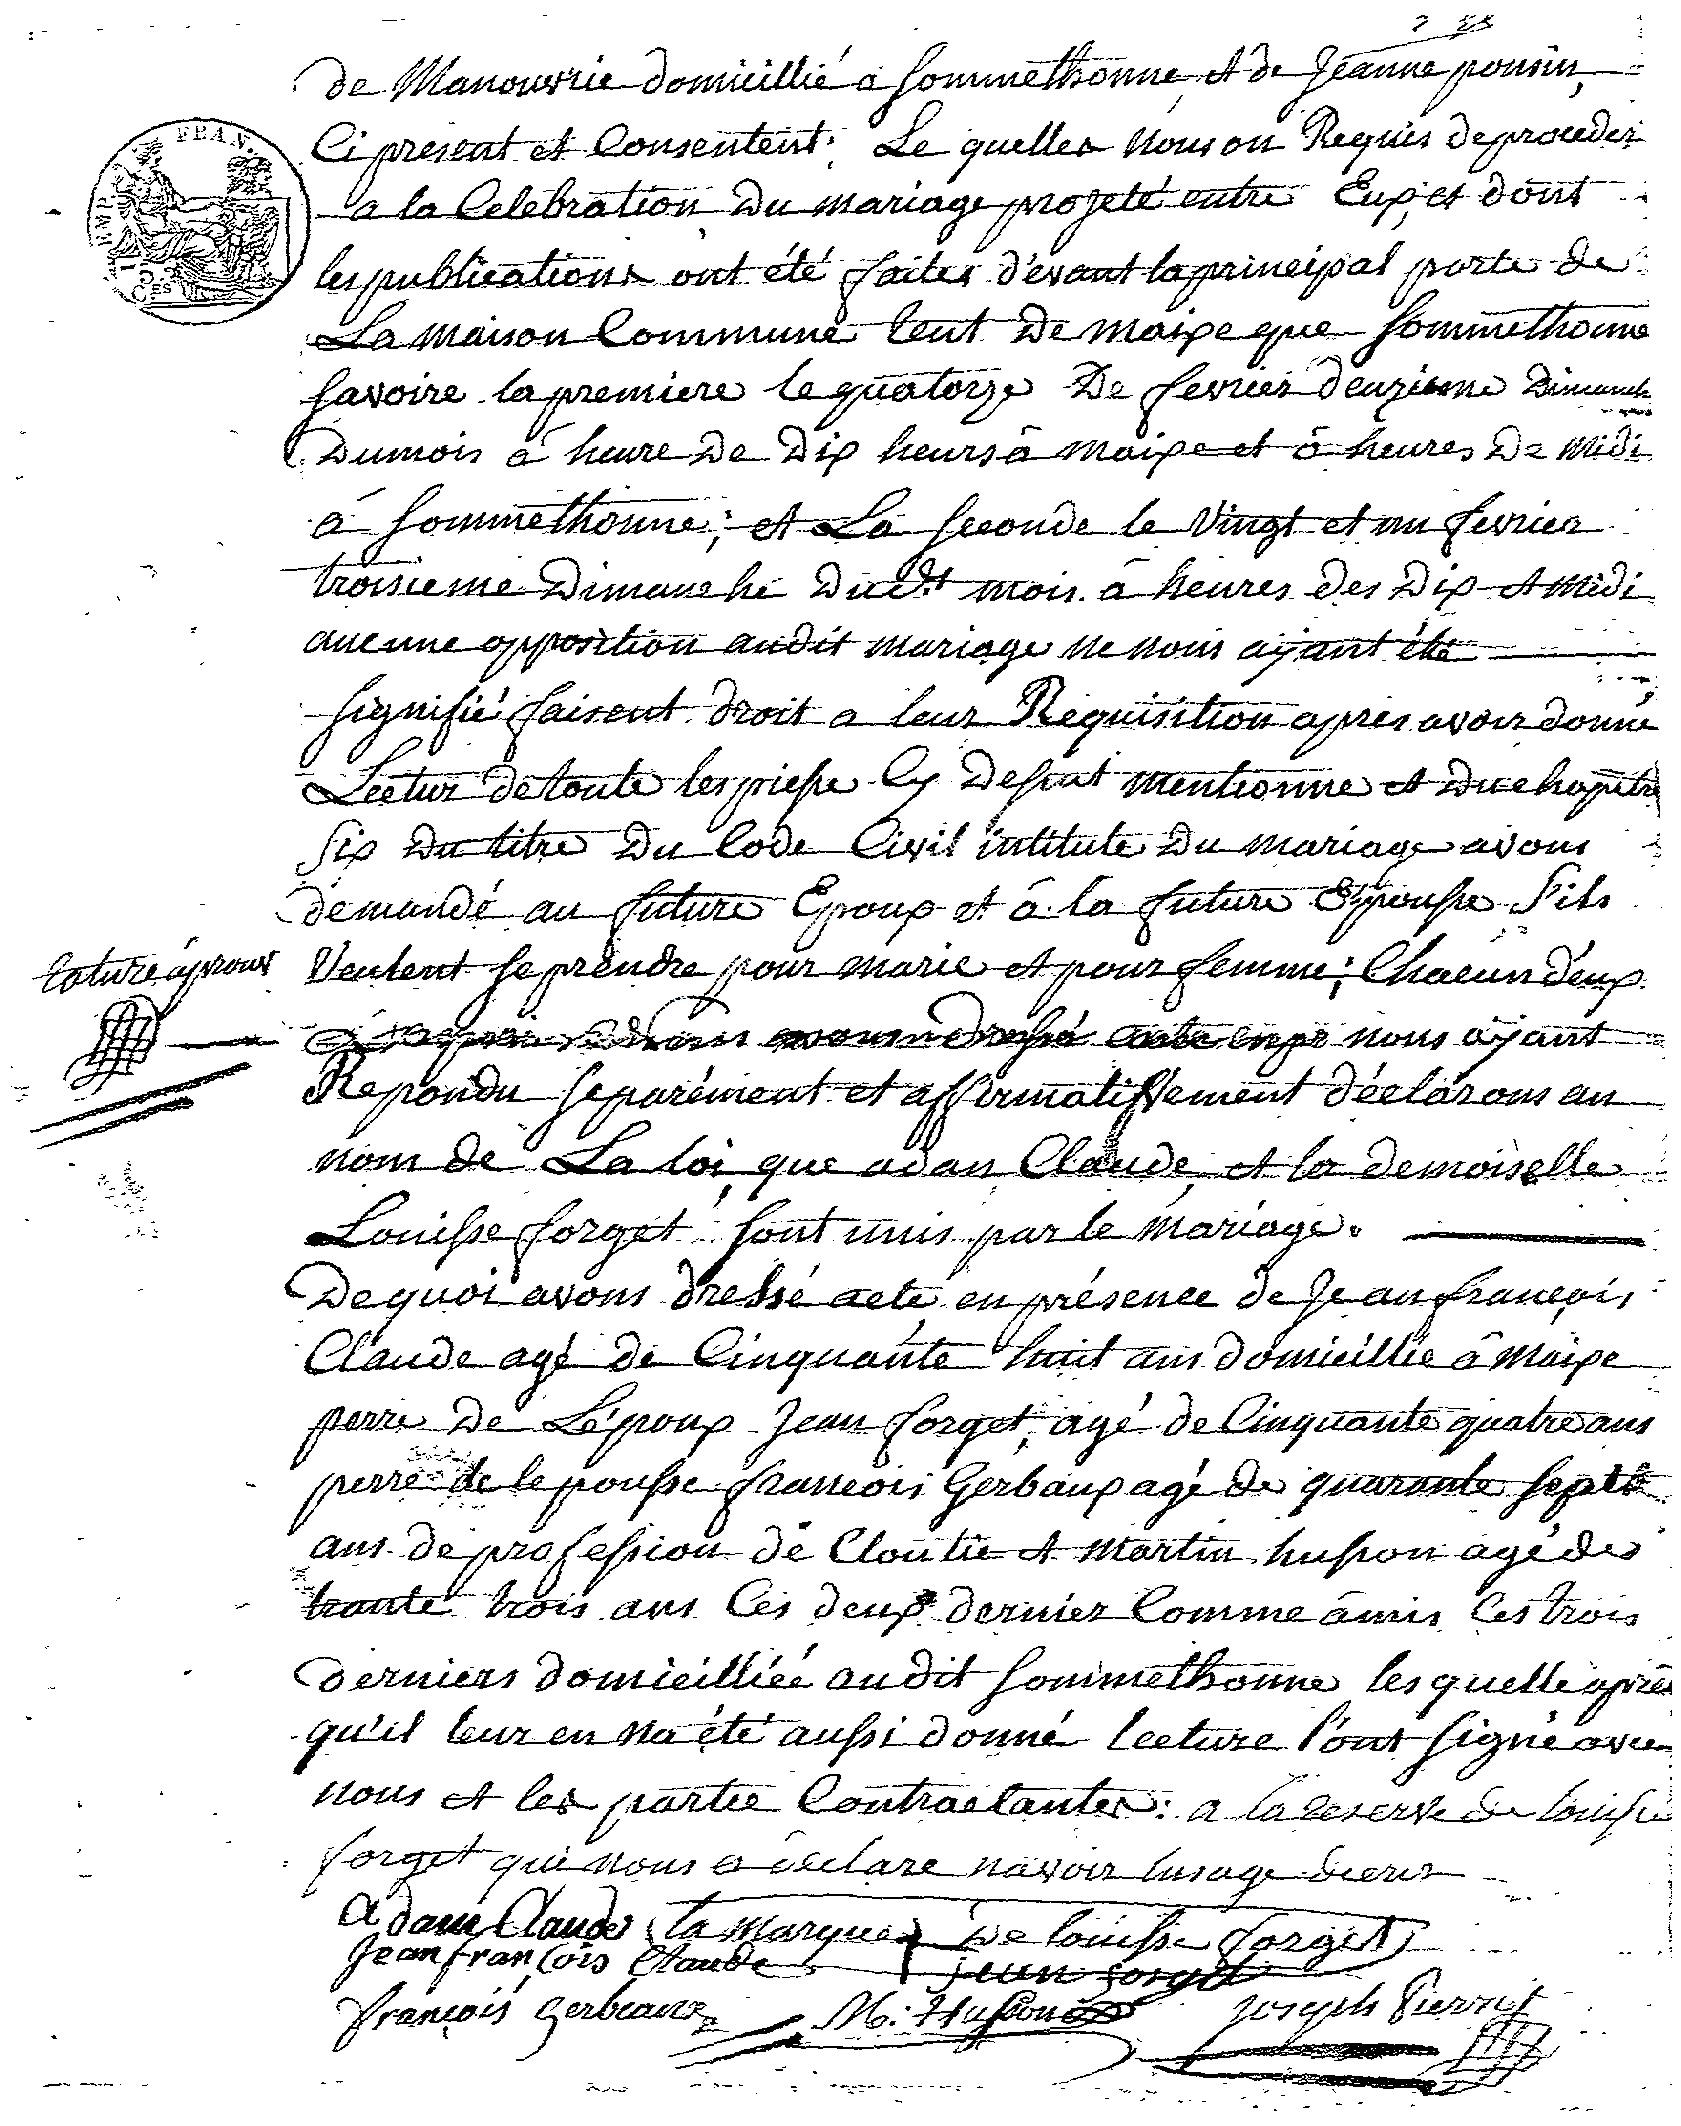 de Manouvrie domicillié a Sommethonne et de Jeanne ponsin,
Ci present et Consentent; Le quelles nous on Requis de proceder
a la Celebration Du mariage projeté entre Eux, et dont
les publications ont été faites d'evant la principal porte de
La maison Commune tent De maixe que Sommethonne
Savoire la premiere le quatorze De fevrier deuzieme Dimanche
Du mois a heure De Dix heurs a maixe et a heures De Midi
a Sommethonne; et La Seconde le Vingt et un fevrier
troisieme Dimanche Dudt mois a heures des Dix et Midi
aucunne opposition audit mariage ne nous ayant été
Signifié faisent droit a leur Requisition apres avoir donné
Lectur de toute les piesse Cy Desut mentionne et Du chapitre
Six Du titre Du Code Civil intitule Du mariage avons
demandé au future Epoux et a la future Epousse Sils
Veulent Se prendre pour marie et pour femme; Chacun d'eux
rature aprouv
nous ayant
Repondu Separément et affirmatifvement déclarons au
nom de La loi que adan Claude et la demoiselle
Louisse forget Sont unis par le Mariage.
De quoi avons dressé acte en présence de Jean francois
Claude agé de Cinquante huit ans domicillie a Maixe
perre De L'époux Jean forget, agé de Cinquante quatre ans
perre de le pousse francois Gerbaux agé de quarante Septe
ans de profession de Cloutie et Martin husson agé de
trante trois ans Ces deux dernier Comme amis Ces trois
derniers domicilliée audit Sommethonne lesquelle après
qu'il leur en na été aussi donné lecture l'ont Signé avec
nous et les partie Contractantes: a la reserve de louisse
forget qui nous a declare navoir lusage decrir
Adam Claude la Marque De louisse forget
Jean françois Claude Jean forget
françois Gerbeaux M: Husson Joseph Pierret